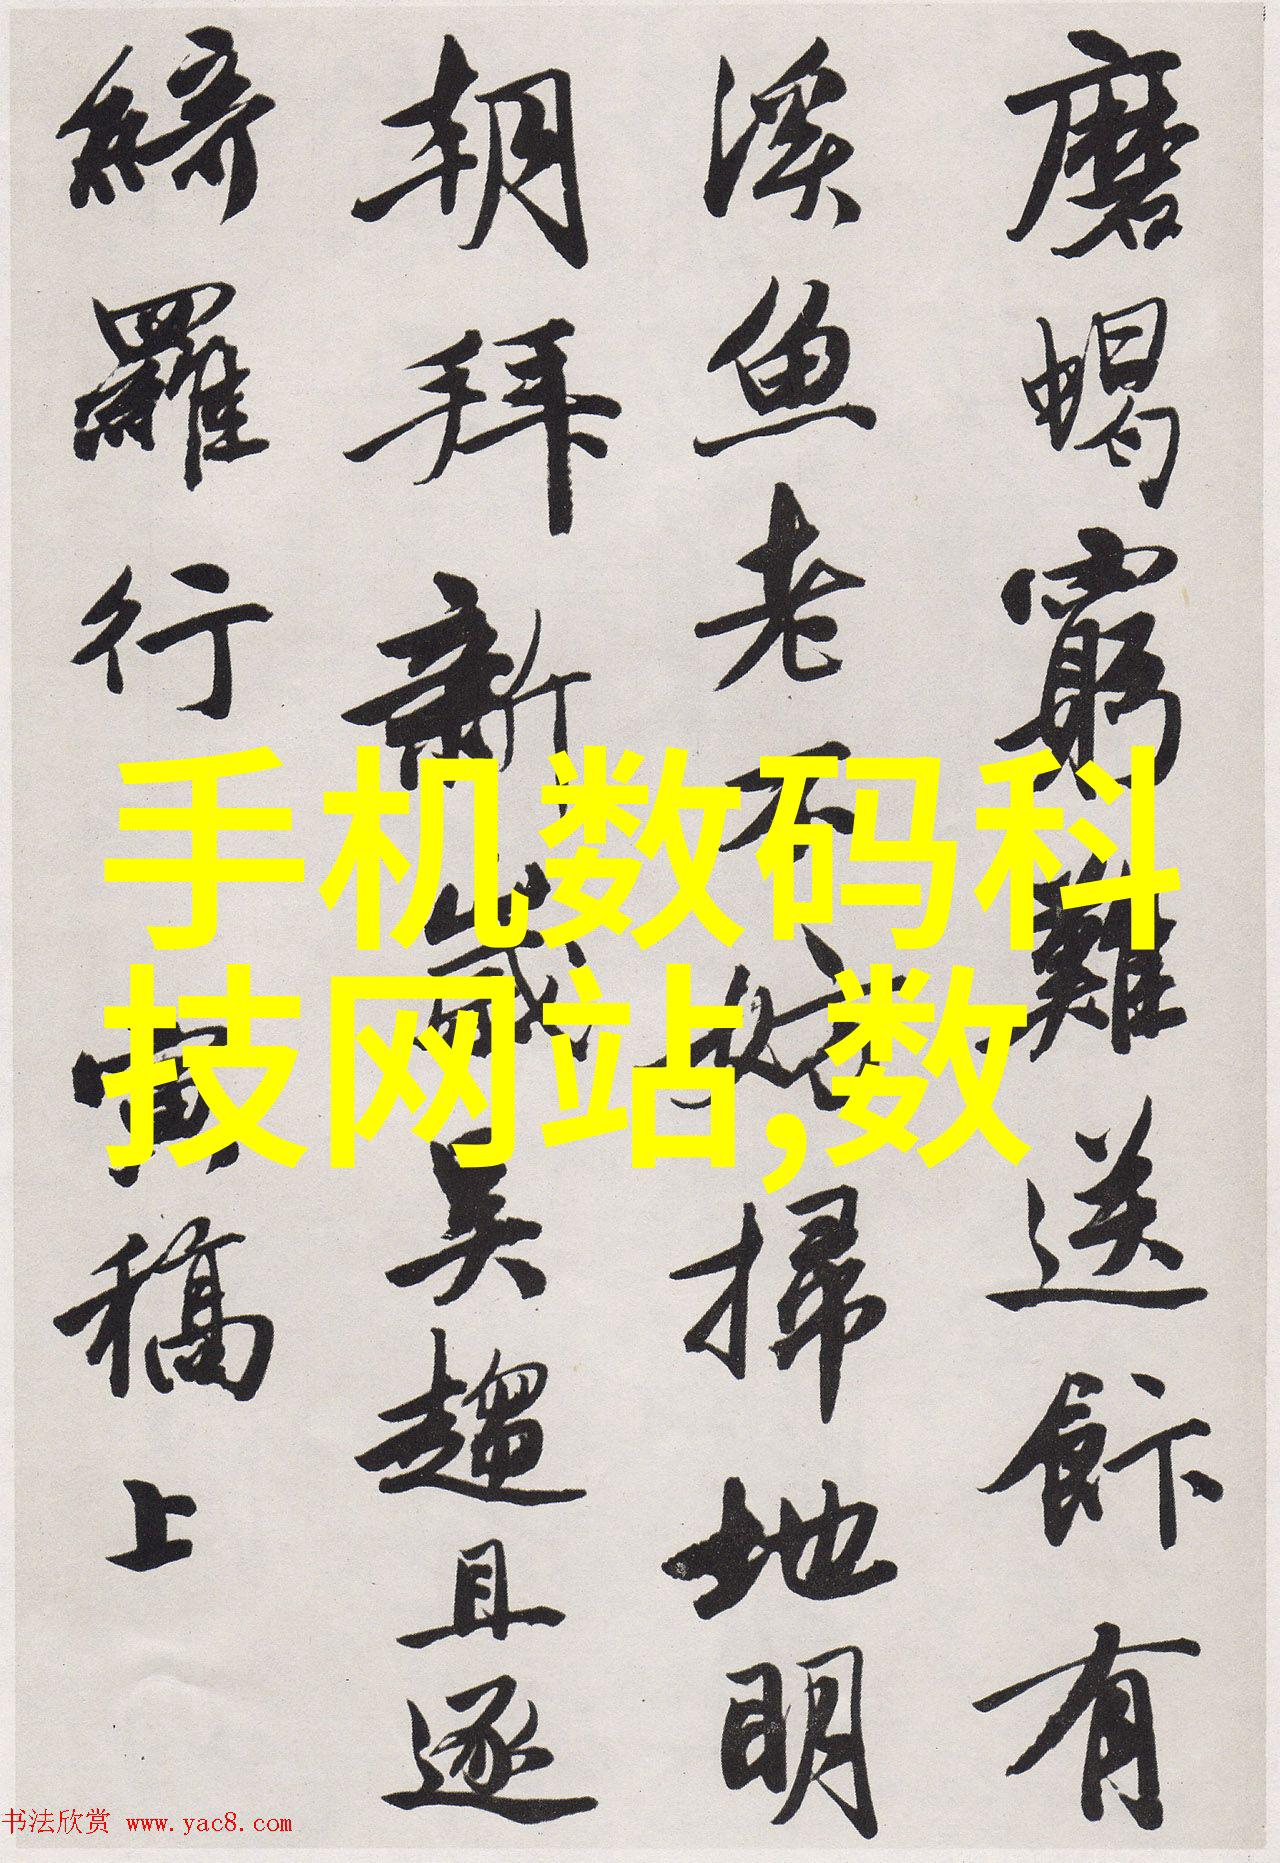 磨蝎窮難送飰有
溪魚老不妨掃地明
朝拜新歲吳趨且逐
綺羅行 稿上
手机数码科
技网站,数
书法欣赏 www.yac8.com